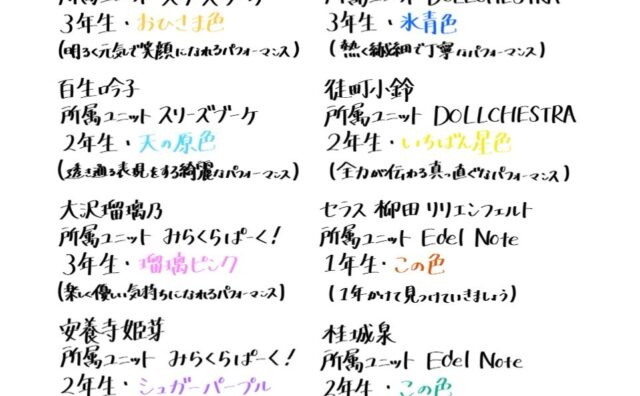 所属ユニット スリーズブーケ
3年生・おひさま色
(明るく元気で笑顔になれるパフォーマンス)
百生吟子
所属ユニット スリーズブーケ
2年生・天の原色
(透き通る表現をする綺麗なパフォーマンス)
大沢瑠璃乃
所属ユニット みらくらぱーく！
3年生・瑠璃ピンク
(楽しく優しい気持ちになれるパフォーマンス)
安養寺姫芽
所属ユニット みらくらぱーく！
2年生・シュガーパープル
所属ユニット DOLLCHESTRA
3年生・氷青色
(熱く繊細で丁寧なパフォーマンス)
徒町小鈴
所属ユニット DOLLCHESTRA
2年生・いちばん星色
(全力が伝わる真っ直ぐなパフォーマンス)
セラス 柳田 リリエンフェルト
所属ユニット Edel Note
1年生・この色
(1年かけて見つけていきましょう)
桂城泉
所属ユニット Edel Note
2年生・この色